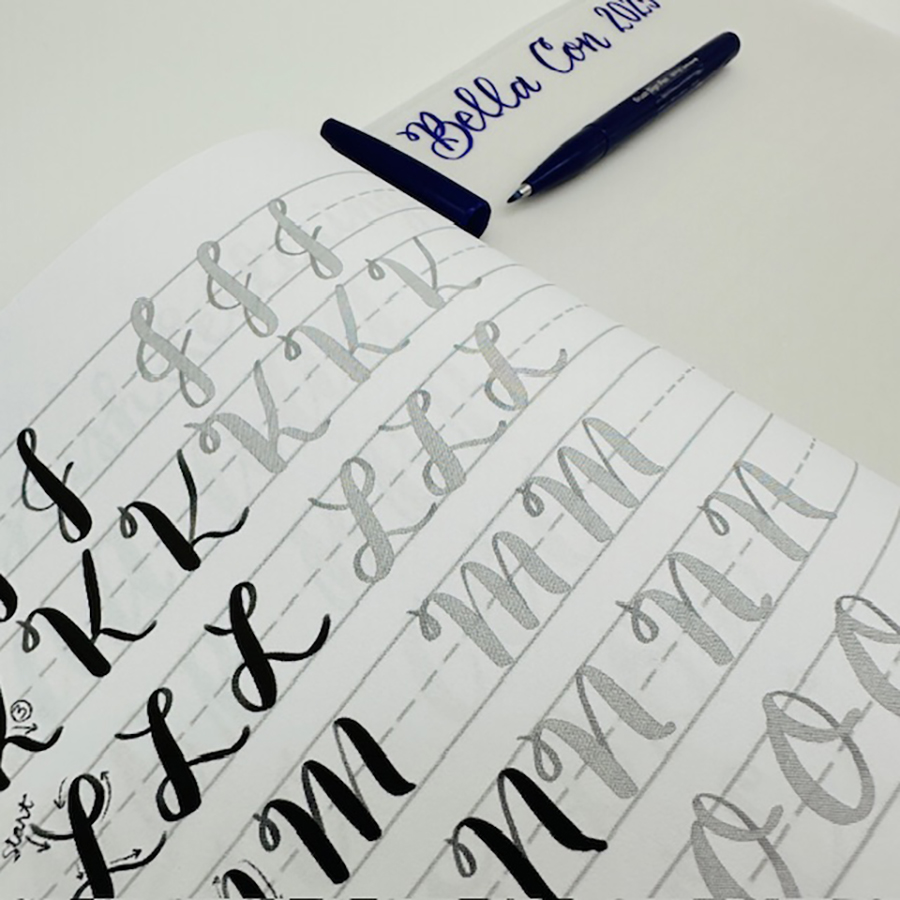 Bella Con
J J J J
K K K K K K
③
Start
L L L L L L
M M M
N N N N
O O O